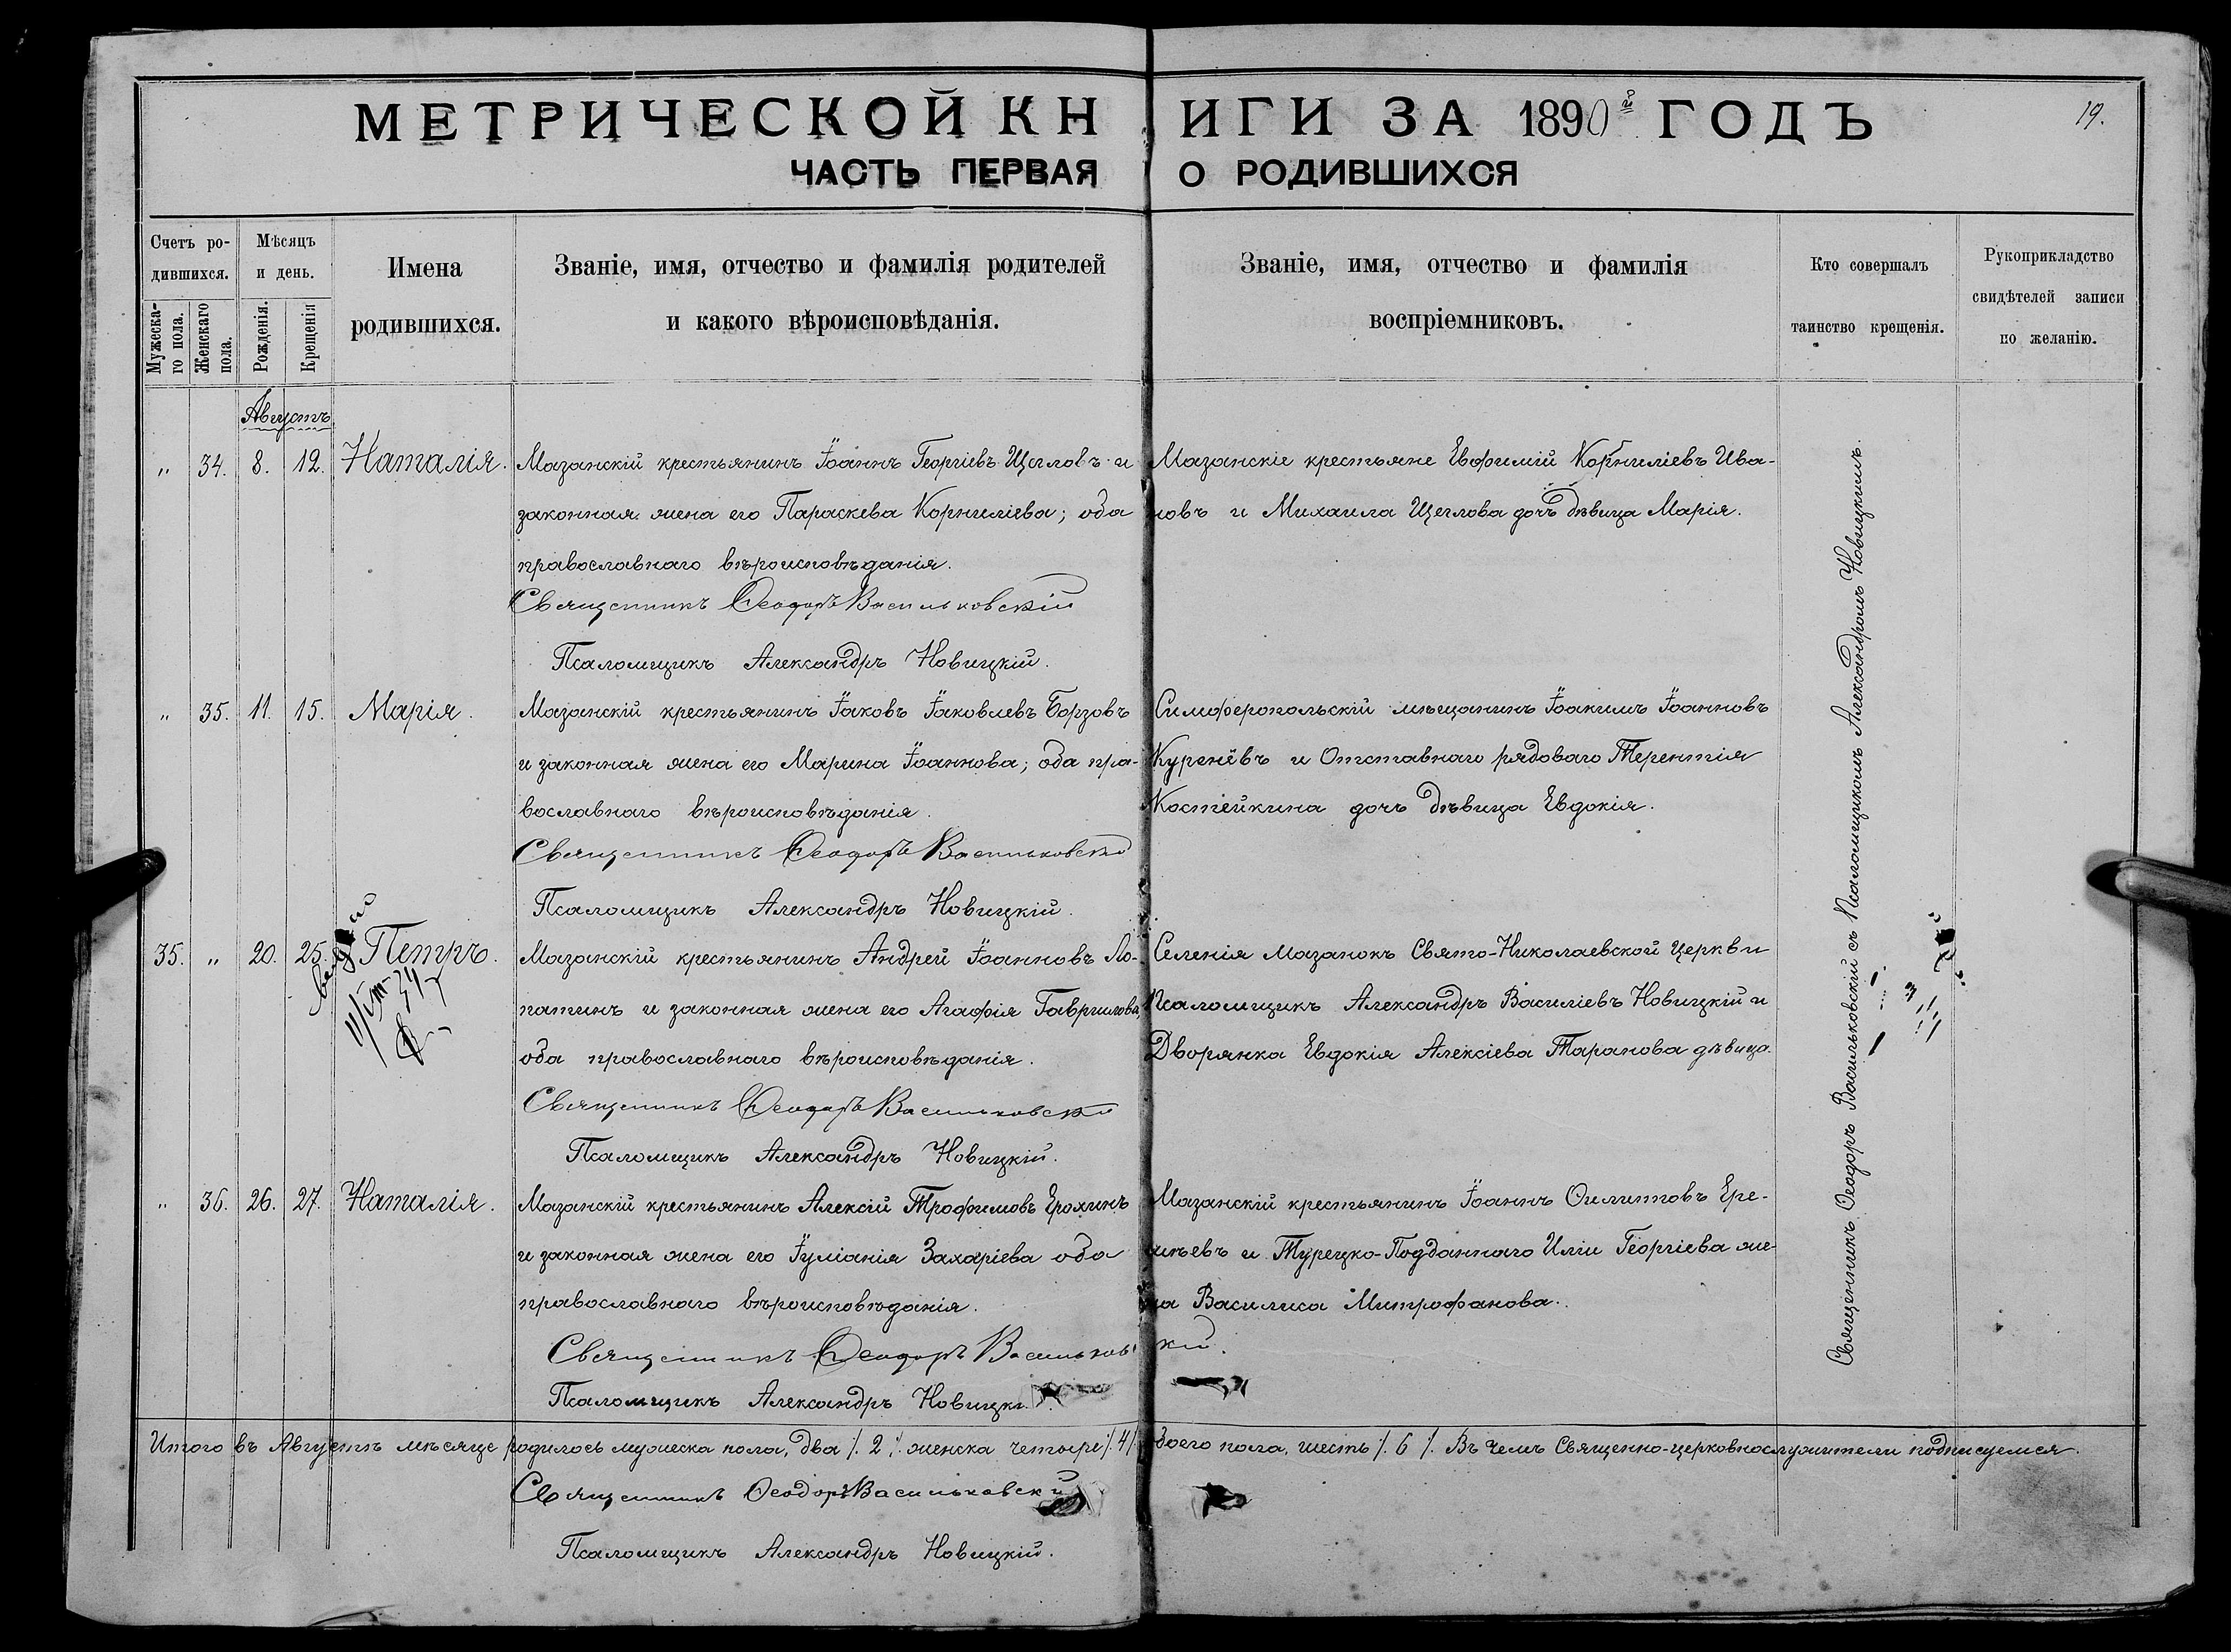 МЕТРИЧЕСКОЙ КНИГИ ЗА 1890й ГОДЪ
19.
ЧАСТЬ ПЕРВАЯ О РОДИВШИХСЯ
Счетъ ро-
дившихся.
Мужеска-
го пола.
Женскаго
пола.
Мѣсяцъ
и день.
Рожденія.
Крещенія
Имена
родившихся.
Званіе, имя, отчество и фамилія родителей
и какого вѣроисповѣданія.
Званіе, имя, отчество и фамилія
воспріемниковъ.
Кто совершалъ
таинство крещенія.
Рукоприкладство
свидѣтелей записи
по желанію.
Августъ
„ 34. 8. 12. Наталія.
Мазанскій крестьянинъ Іоаннъ Георгіевъ Щегловъ и
законная жена его Параскева Корниліева; оба
православнаго вѣроисповѣданія.
Священникъ Ѳеодоръ Васильковскій
Псаломщикъ Александръ Новицкій.
Мазанскіе крестьяне Евфимій Корниліевъ Ива-
новъ и Михаила Щеглова дочь дѣвица Марія.
„ 35. 11. 15. Марія.
Мазанскій крестьянинъ Іаковъ Іаковлевъ Борзовъ
и законная жена его Марина Іоаннова; оба пра-
вославнаго вѣроисповѣданія.
Священникъ Ѳеодоръ Васильковскій
Псаломщикъ Александръ Новицкій.
Симферопольскій мѣщанинъ Іоакимъ Іоанновъ
Курнёвъ и Отставнаго рядоваго Терентія
Костейкина дочь дѣвица Евдокія.
35. „ 20. 25. Петръ.
Мазанскій крестьянинъ Андрей Іоанновъ Ло-
патинъ и законная жена его Агафія Гавриилова,
оба православнаго вѣроисповѣданія.
Священникъ Ѳеодоръ Васильковскій
Псаломщикъ Александръ Новицкій.
Селенія Мазанокъ Свято-Николаевской Церкви
Псаломщикъ Александръ Василіевъ Новицкій и
Дворянка Евдокія Алексіева Таранова дѣвица.
„ 36. 26. 27. Наталія.
Мазанскій крестьянинъ Алексій Трофимовъ Ерохинъ
и законная жена его Іуліанія Захаріева оба
православнаго вѣроисповѣданія.
Священникъ Ѳеодоръ Васильковскій.
Псаломщикъ Александръ Новицкі
Мазанскій крестьянинъ Іоаннъ Филиповъ Ере-
мѣевъ и Турецко-Подданнаго Иліи Георгіева же-
на Василиса Митрофанова.
Священникъ Ѳеодоръ Васильковскій съ Псаломщикомъ Александромъ Новицкимъ.
Итого въ Августѣ мѣсяце родилось мужеска пола, два ⁒ 2 ⁒ женска четыре ⁒ 4 ⁒ обоего пола, шесть ⁒ 6 ⁒ Въ чемъ Священно-церковнослужители подписуемся.
Священникъ Ѳеодоръ Васильковскій
Псаломщикъ Александръ Новицкій.